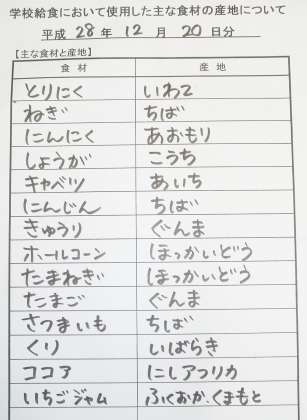 学校給食において使用した主な食材の産地について
平成 28 年 12 月 20 日分
【主な食材と産地】
食材 産地
とりにく いわて
ねぎ ちば
にんにく あおもり
しょうが こうち
キャベツ あいち
にんじん ちば
きゅうり ぐんま
ホールコーン ほっかいどう
たまねぎ ほっかいどう
たまご ぐんま
さつまいも ちば
くり いばらき
ココア にしアフリカ
いちごジャム ふくおか、くまもと